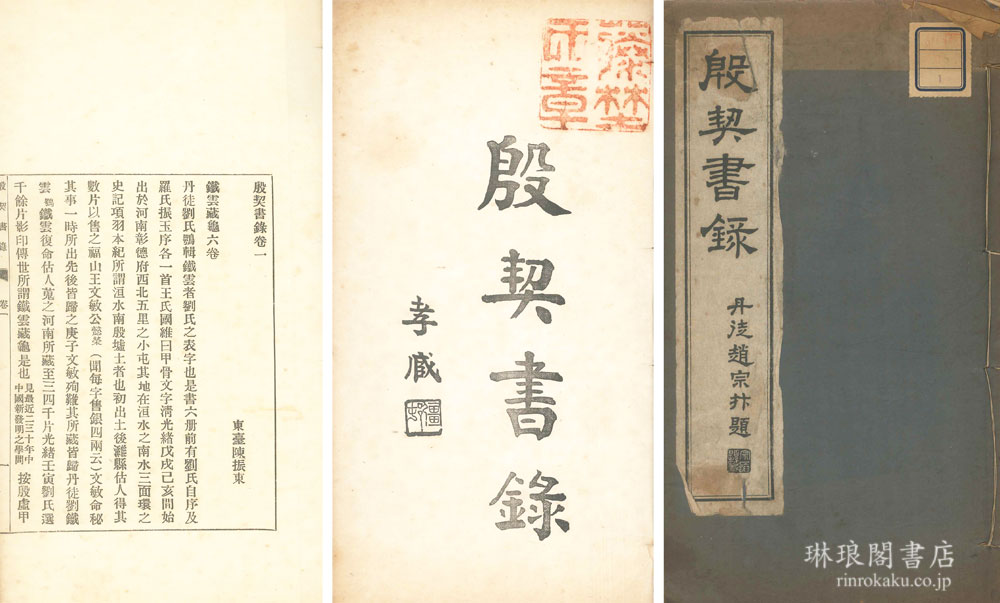 殷契書錄
丹徒趙宗抃題
藤埜
氏章
殷契書錄
孝臧
彊邨
殷契書錄卷一
東臺陳振東
鐵雲藏龜六卷
丹徒劉氏鶚輯鐵雲者劉氏之表字也是書六册前有劉氏自序及
羅氏振玉序各一首王氏國維曰甲骨文字清光緒戊戌己亥間始
出於河南彰德府西北五里之小屯其地在洹水之南水三面環之
史記項羽本紀所謂洹水南殷墟上者也初出土後濰縣估人得其
數片以售之福山王文敏公懿榮（聞每字售銀四兩云）文敏命秘
其事一時所出先後皆歸之庚子文敏殉難其所藏皆歸丹徒劉鐵
雲鶚鐵雲復命估人蒐之河南所藏至三四千片光緒壬寅劉氏選
千餘片影印傳世所謂鐵雲藏龜是也見最近二三十年中中國新發明之學問按殷虛甲
殷契書錄 卷一
琳琅閣書店
rinrokaku.co.jp